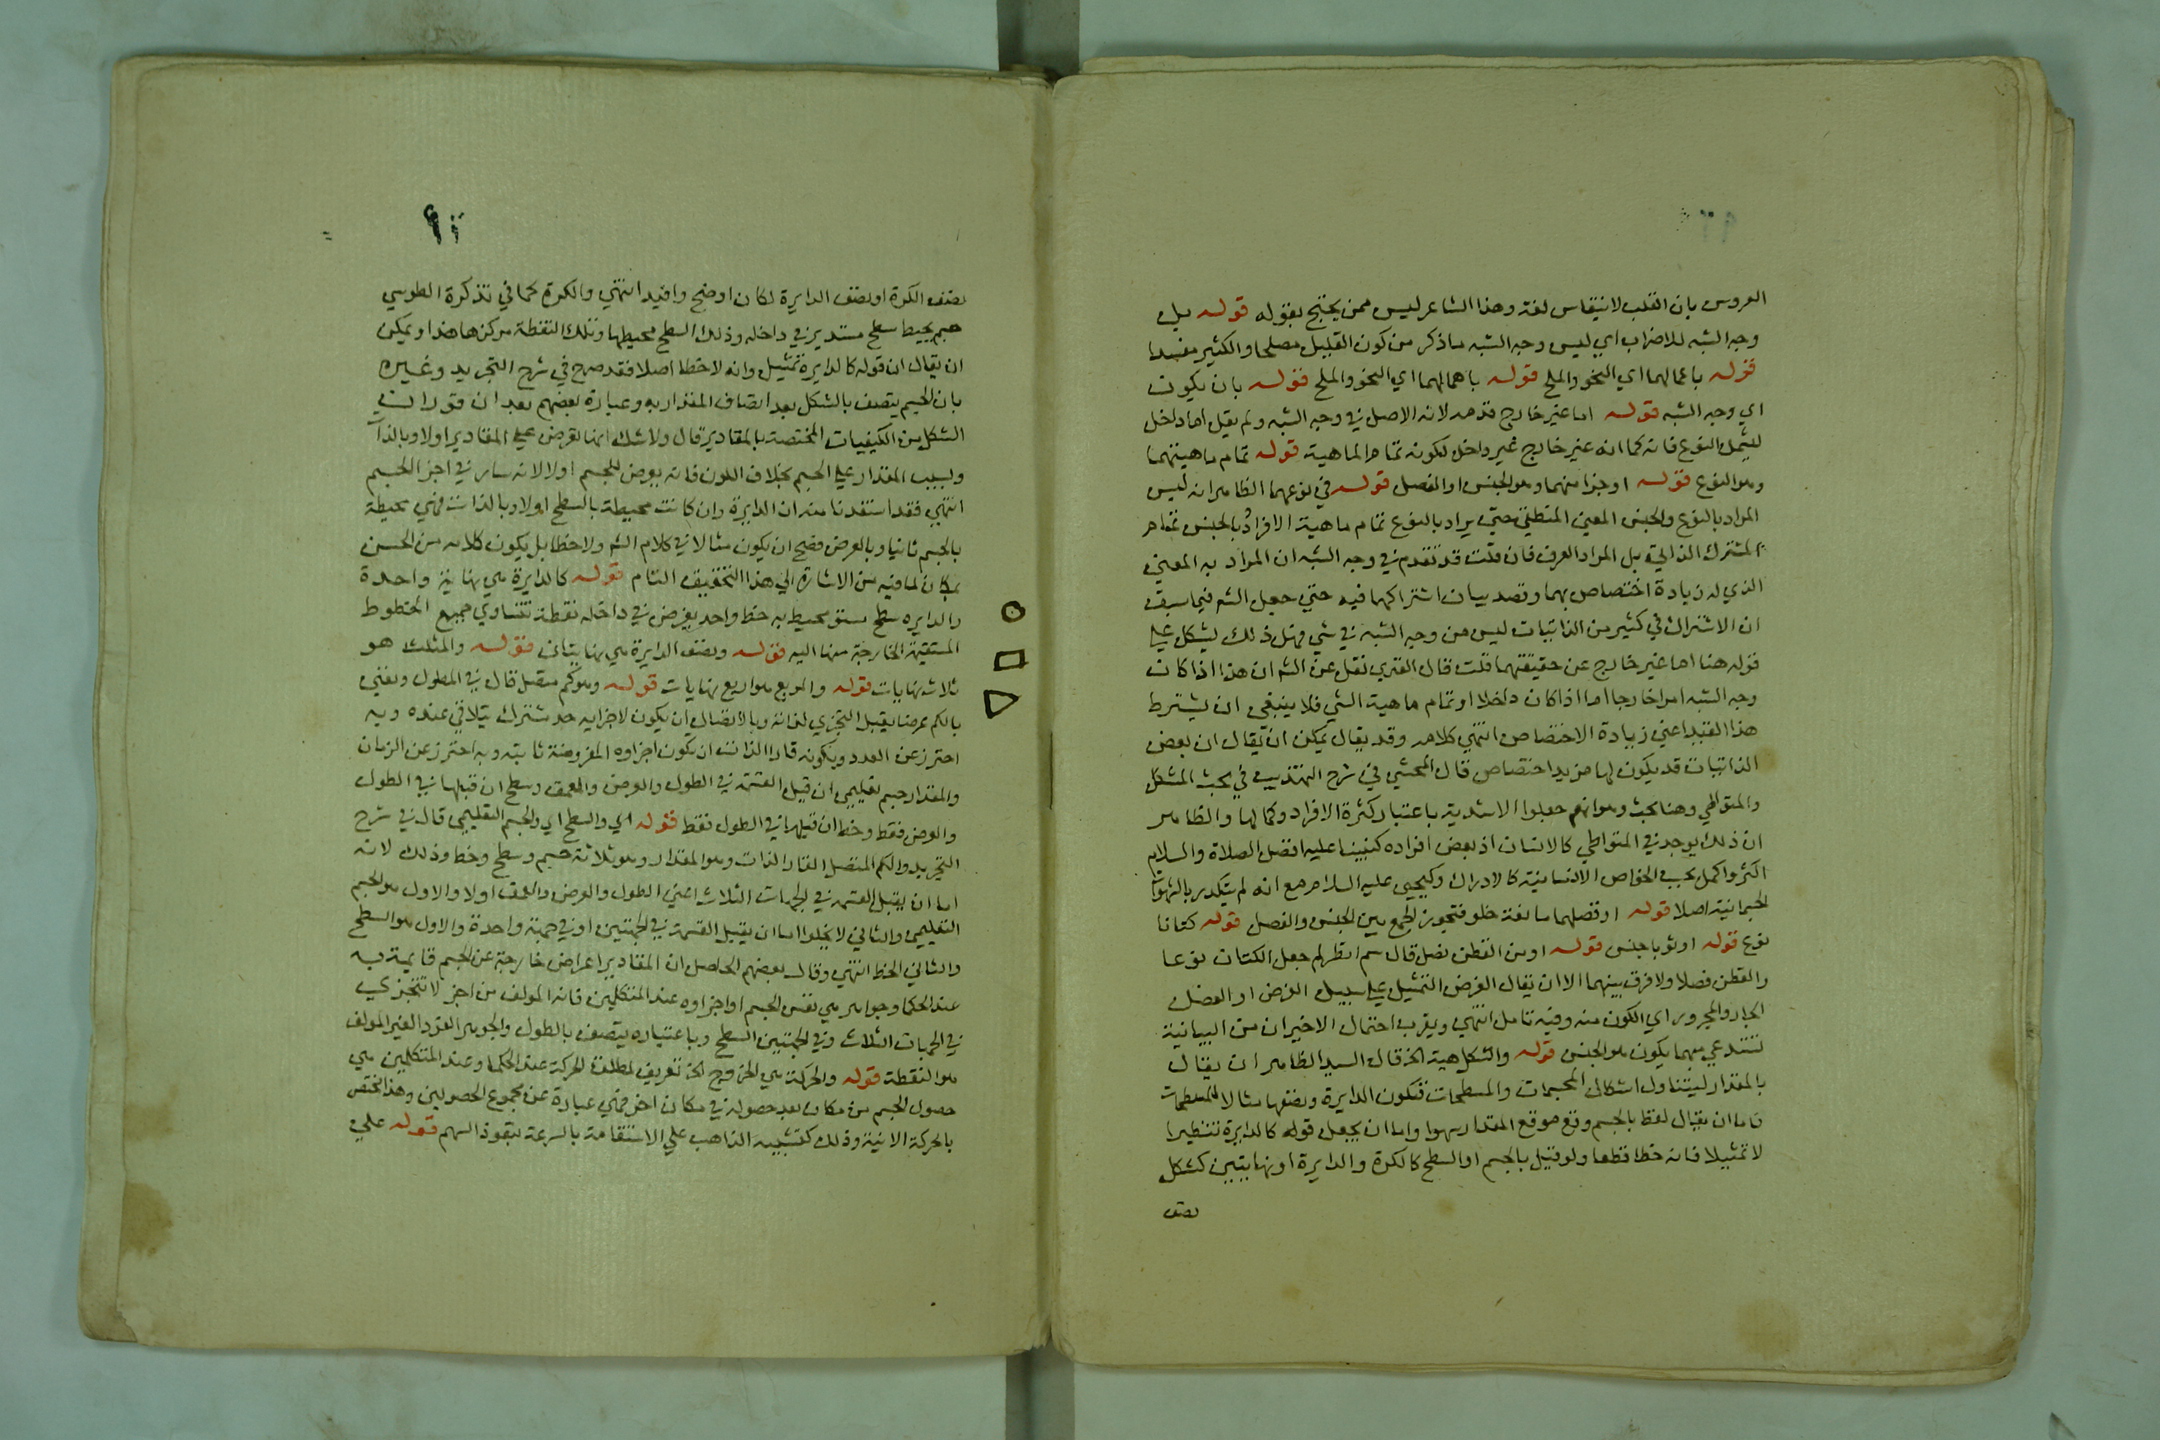 العروس بان القلب لا ينقاس لغة وهذا الشاعر ليس ممن يحتج بقوله قوله بل
وجه الشبه للاضراب اي ليس وجه الشبه ما ذكر من كون القليل مصلحا والكثير مفسدا
قوله باعمالهما اي النحو والملح قوله باهمالهما اي النحو والملح قوله بان يكون
اي وجه الشبه قوله اما غير خارج قدمه لانه الاصل في وجه الشبه ولم يقل اما داخل
ليشمل النوع فانه كما انه غير خارج غير داخل لكونه تمام الماهية قوله تمام ماهيتهما
وهو النوع قوله او جزا منهما وهو الجنس او الفصل قوله في نوعهما الظاهر انه ليس
المراد بالنوع والجنس المعنى المنطقي حتى يراد بالنوع تمام ماهية الافراد وبالجنس تمام
المشترك الذاتي بل المراد العرف فان قلت قد تقدم في وجه الشبه ان المراد به المعنى
الذي له زيادة اختصاص بهما وقصد بيان اشتراكهما فيه حتى جعل الشم فيما سبق
ان الاشتراك في كثير من الذاتيات ليس من وجه الشبه في شي فهل ذلك يشكل على
قوله هنا اما غير خارج عن حقيقتهما قلت قال الفنري نقل عن الشم ان هذا اذا كان
وجه الشبه امرا خارجا اما اذا كان داخلا او تمام ماهية الشي فلا ينبغي ان يشترط
هذا القيد اعني زيادة الاختصاص انتهي كلامه وقد يقال يمكن ان يقال ان بعض
الذاتيات قد يكون لها مزيد اختصاص قال المحشي في شرح التهذيب في بحث المشكل
والمتواطي وهنا بحث وهو انهم جعلوا الاشدية باعتبار كثرة الافراد وكمالها والظاهر
ان ذلك يوجد في المتواطي كالانسان اذ بعض افراده كنبينا عليه افضل الصلاة والسلام
اكثر واكمل بحسب الخواص الانسانية كالادراك وكيحيى عليه السلام مع انه لم يتكدر بالشهوات
الجسمانية اصلا قوله او فصلهما مانعة خلو فتجوز الجمع بين الجنس والفصل قوله كتانا
نوع قوله او ثوبا جنس قوله او من القطن فصل قال سم انظر لم جعل الكتان نوعا
والقطن فصلا ولا فرق بينهما الا ان يقال الغرض التمثيل على سبيل الفرض او الفصل
الجار والمجرور اي الكون منه وفيه تامل انتهي ويقرب احتمال الاخير ان من البيانية
تستدعي مبهما يكون هو الجنس قوله والشكل هية الخ قال السيد الظاهر ان يقال
بالمقدار ليتناول اشكال المجسمات والمسطحات فتكون الدايرة ونصفها مثالا للمسطحات
فاما ان يقال لفظ بالجسم وقع موقع المقدار سهوا واما ان يجعل قوله كالدايرة تنظيرا
لا تمثيلا فانه خطا قطعا ولو قيل بالجسم او السطح كالكرة والدايرة او نهايتين كشكل
نصف
نصف الكرة او نصف الدايرة لكان اوضح وافيد انتهي والكرة كما في تذكرة الطوسي
جسم يحيط سطح مستدير في داخله وذلك السطح محيطها وتلك النقطة مركزها هذا ويمكن
ان يقال ان قوله كالدايرة تمثيل وانه لا خطا اصلا فقد صرح في شرح التجريد وغيره
بان الجسم يتصف بالشكل بعد اتصاف المقدار به وعبارة بعضهم بعد ان قرر ان
الشكل من الكيفيات المختصة بالمقادير قال ولا شك انها تعرض على المقادير اولا وبالذات
وبسبب المقدار على الجسم بخلاف اللون فانه يعرض للجسم اولا لانه سار في اجزا الجسم
انتهي فقد استفدنا منه ان الدايرة وان كانت محيطة بالسطح اولا وبالذات فهي محيطة
بالجسم ثانيا وبالعرض فصح ان يكون مثالا في كلام الشم ولا خطا بل يكون كلامه من الحسن
بمكان لما فيه من الاشارة الى هذا التحقيق التام قوله كالدايرة هي نهاية واحدة
والدايره سطح مستو يحيط به خط واحد يفرض في داخله نقطة تتساوي جميع الخطوط
المستقيمة الخارجة منها اليه قوله ونصف الدايرة هي نهايتان قوله والمثلث هو
ثلاث نهايات قوله والمربع هو اربع نهايات قوله وهو كم متصل قال في المطول ونعني
بالكم عرضا يقبل التجزي لذاته وبالاتصال ان يكون لاجزايه حد مشترك تتلاقى عنده وبه
احترز عن العدد وبكونه قار الذات ان يكون اجزاوه المفروضة ثابته وبه احترز عن الزمان
والمقدار جسم تعليمي ان قبل القسمة في الطول والعرض والعمق وسطح ان قبلها في الطول
والعرض فقط وخط ان قبلها في الطول فقط قوله اي والسطح اي والجسم التعليمي قال في شرح
التجريد والكم المتصل القار الذات وهو المقدار وهو ثلاثة جسم وسطح وخط وذلك لانه
اما ان يقبل القسمة في الجهات الثلاث اعني الطول والعرض والعمق اولا والاول هو الجسم
التعليمي والثاني لا يخلوا اما ان يقبل القسمة في الجهتين او في جهة واحدة والاول هو السطح
والثاني الخط انتهي وقال بعضهم الحاصل ان المقادير اعراض خارجة عن الجسم قايمة به
عند الحكما وجواهر هي نفس الجسم او اجزاوه عند المتكلمين فانه المولف من اجزا لا تتجزي
في الجهات الثلاث وفي الجهتين السطح وباعتباره يتصف بالطول والجوهر الفرد الغير المولف
هو النقطة قوله والحركة هي الخروج الخ تعريف لمطلق الحركة عند الحكما وعند المتكلمين هي
حصول الجسم في مكان بعد حصوله في مكان اخر فهي عبارة عن مجموع الحصولين وهذا مختص
بالحركة الاينية وذلك كتشبيه الذاهب على الاستقامة بالسرعة بنفوذ السهم قوله على